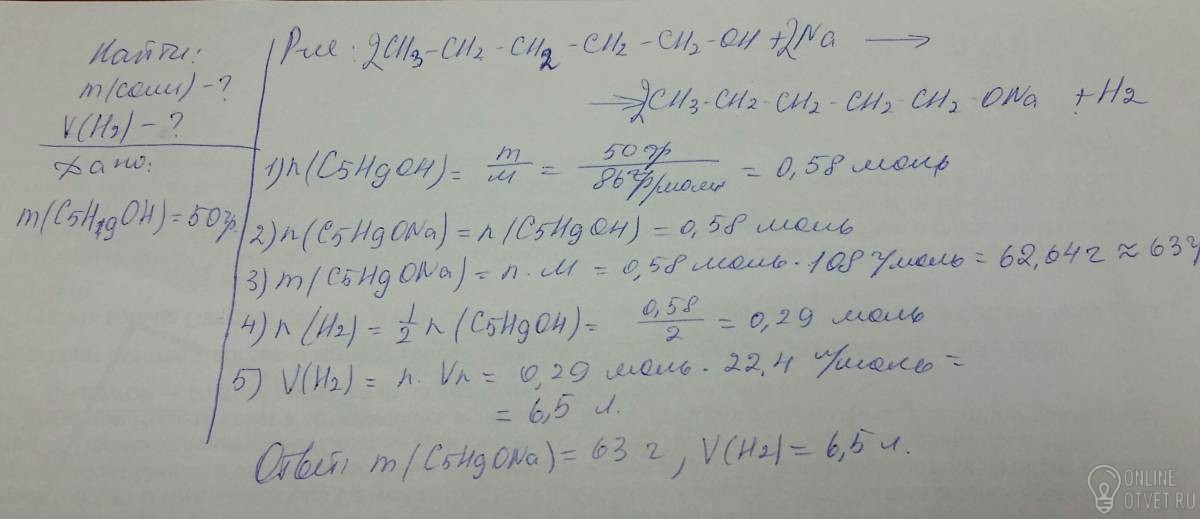 Найти:
m(соли) - ?
V(H2) - ?
Дано:
m(C5H9OH) = 50гр.
Р-ие: 2CH3-CH2-CH2-CH2-CH2-OH + 2Na →
→ 2CH3-CH2-CH2-CH2-CH2-ONa + H2
1) n(C5H9OH) = m/M = 50гр/86гр/моль = 0,58 моль
2) n(C5H9ONa) = n(C5H9OH) = 0,58 моль
3) m(C5H9ONa) = n · M = 0,58 моль · 108 г/моль = 62,64 г ≈ 63 г
4) n(H2) = 1/2 n(C5H9OH) = 0,58/2 = 0,29 моль
5) V(H2) = n · Vn = 0,29 моль · 22,4 л/моль =
= 6,5 л.
Ответ: m(C5H9ONa) = 63 г, V(H2) = 6,5 л.
ONLINE
OTVET.RU